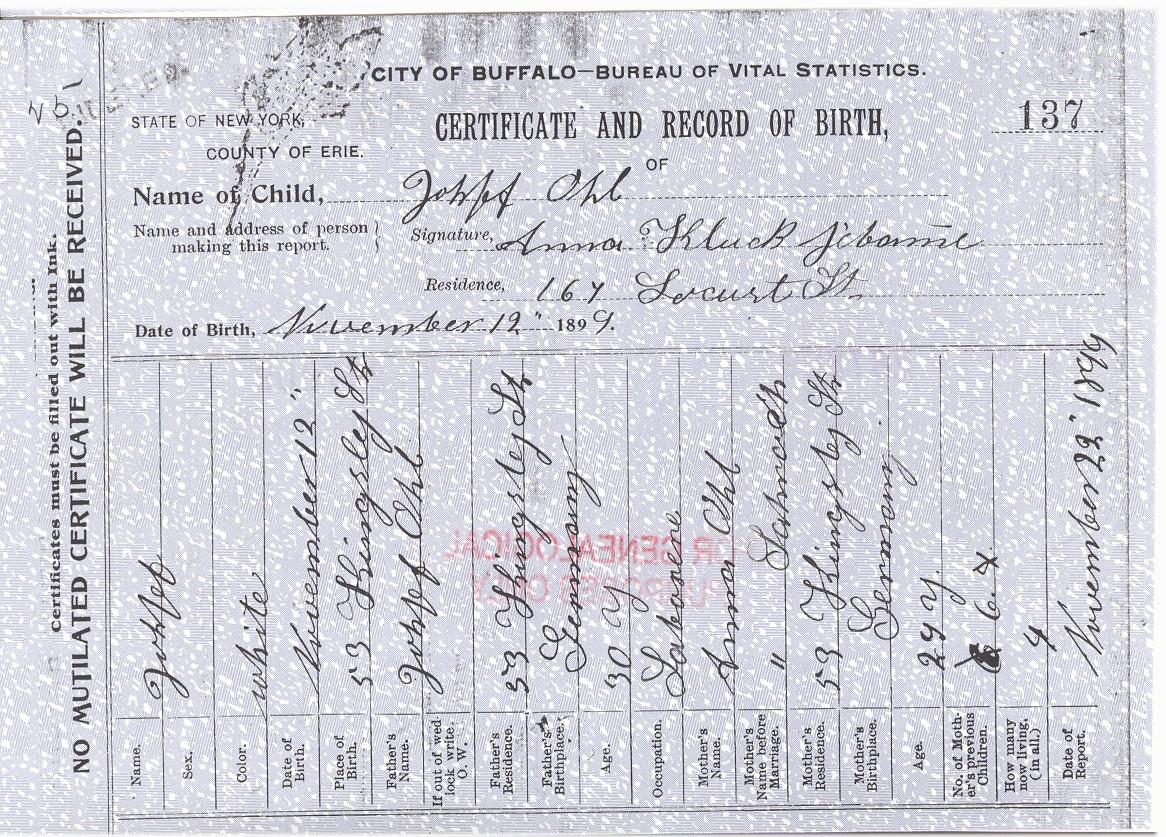 CITY OF BUFFALO—BUREAU OF VITAL STATISTICS.
STATE OF NEW YORK,
COUNTY OF ERIE.
CERTIFICATE AND RECORD OF BIRTH,
137
OF
Name of Child, Joseff Ohl
Name and address of person making this report.
Signature, Anna Kluck
Residence, 167 Locust St
Date of Birth, November 12" 1899.
Certificates must be filled out with Ink.
NO MUTILATED CERTIFICATE WILL BE RECEIVED.
Name. Joseff
Sex.
Color. white
Date of Birth. November 12"
Place of Birth. 53 Kingsley St
Father's Name. Josef Ohl
If out of wedlock write: O. W.
Father's Residence. 53 Kingsley St
Father's Birthplace. Germany
Age. 30 y
Occupation.
Mother's Name. Anna Ohl
Mother's Name before Marriage. "
Mother's Residence. 53 Kingsley St
Mother's Birthplace. Germany
Age. 29 y.
No. of Mother's previous Children. 6.
How many now living, (in all.) 4
Date of Report. November 22" 1899
FOR GENEALOGICAL
PURPOSES ONLY